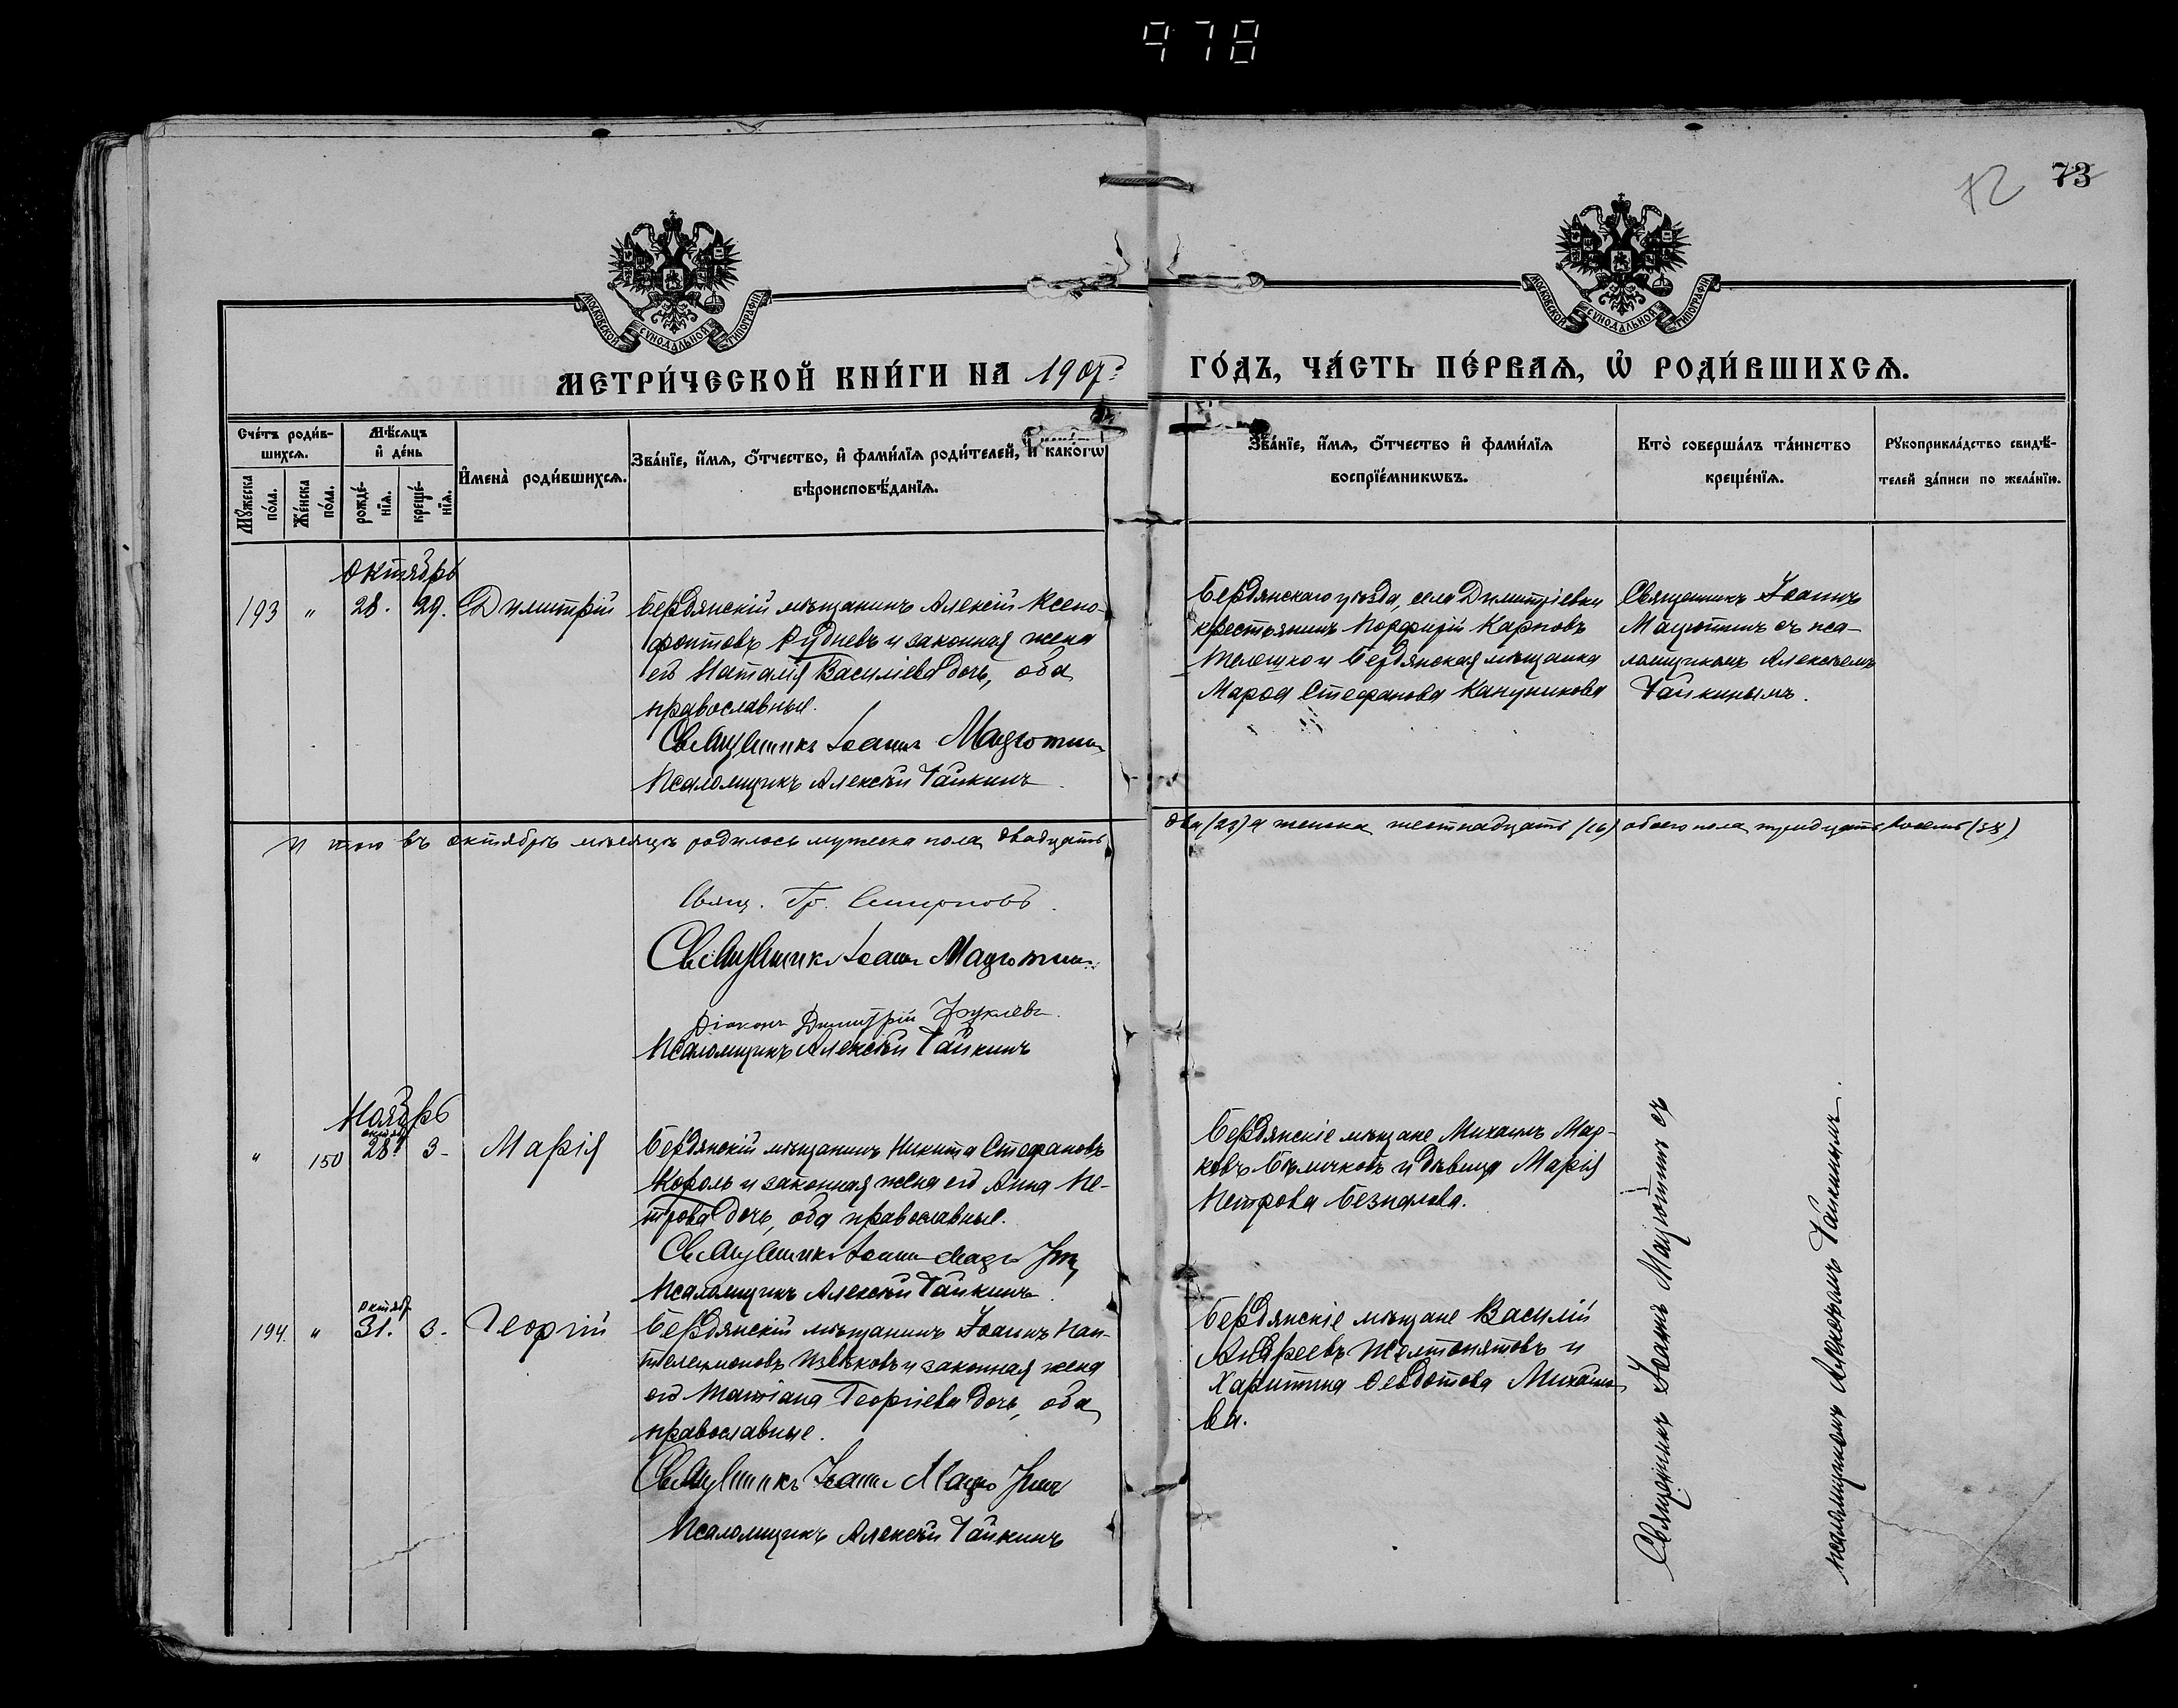 978
72 73
МОСКОВСКОЙ СѴНОДАЛЬНОЙ ТИПОГРАФІИ
МОСКОВСКОЙ СѴНОДАЛЬНОЙ ТИПОГРАФІИ
МЕТРИ́ЧЕСКОЙ КНИ́ГИ НА 1907 ГО́ДЪ, ЧА́СТЬ ПЕ́РВАѦ, Ѡ҆ РОДИ́ВШИХСѦ.
Сче́тъ роди́в-
шихсѧ.
Мꙋ́жеска по́ла.
Же́нска по́ла.
Мѣ́сѧцъ
и҆ де́нь
рожде́-
нїѧ.
креще́-
нїѧ.
И҆мена̀ роди́вшихсѧ.
Зва́нїе, и҆́мѧ, ѻ҆́тчество, и҆ фами́лїѧ роди́телей, и҆ како́гѡ
вѣроисповѣ́данїѧ.
Зва́нїе, и҆́мѧ, ѻ҆́тчество и҆ фами́лїѧ
воспрїе́мникѡвъ.
Кто̀ соверша́лъ та́инство
креще́нїѧ.
Рꙋкоприкла́дство свидѣ́-
телей за́писи по жела́нїю.
Октябрь
193 " 28. 29. Димитрій
Бердянскій мѣщанинъ Алексій Ксено-
фонтовъ Рудневъ и законная жена
его Наталія Василіева дочь, оба
православные.
Священникъ Іоаннъ Мацютинъ
Псаломщикъ Алексѣй Тайкинъ
Бердянскаго уѣзда, села Димитріевки
крестьянинъ Порфирій Карповъ
Телешко и Бердянская мѣщанка
Марѳа Стефанова Канунникова
Священникъ Іоаннъ
Мацютинъ съ пса-
ломщикомъ Алексѣемъ
Тайкинымъ.
Итого въ октябрѣ мѣсяцѣ родилось мужеска пола двадцать
два (22) а женска шестнадцать (16) обоего пола тридцать восемь (38)
Свящ. Гр. Смирновъ.
Священникъ Іоаннъ Мацютинъ
Діаконъ Димитрій
Псаломщикъ Алексѣй Тайкинъ
Ноябрь
" 150 октяб. 28. 3. Марія
Бердянскій мѣщанинъ Никита Стефановъ
Король и законная жена его Анна Пе-
трова дочь, оба православные.
Священникъ Іоаннъ Мацютинъ
Псаломщикъ Алексѣй Тайкинъ
Бердянскіе мѣщане Михаилъ Мар-
ковъ Бѣличковъ и дѣвица Марія
Петрова Безпалова.
194. " октяб. 31. 3. Георгій
Бердянскій мѣщанинъ Іоаннъ Пан-
телеимоновъ Извѣковъ и законная жена
его Татіана Георгіева дочь, оба
православные.
Священникъ Іоаннъ Мацютинъ
Псаломщикъ Алексѣй Тайкинъ
Бердянскіе мѣщане Василій
Андреевъ Желтопятовъ и
Харитина Ѳеодотова Михайло-
ва.
Священникъ Іоаннъ Мацютинъ съ
псаломщикомъ Алексѣемъ Тайкинымъ.